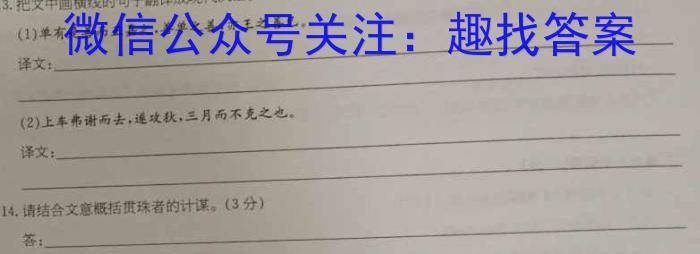 3.把文中画横线的句子翻译成现代汉语。
(1)单有
微信公众号关注：趣找答案
译文：
(2)上车弗谢而去,遂攻狄,三月而不克之也。
译文：
14.请结合文意概括贯珠者的计谋。(3分)
答：